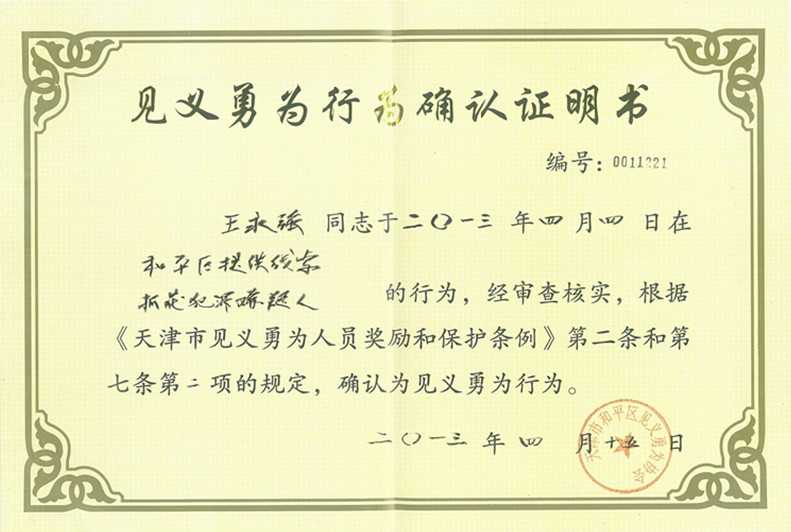 见义勇为行为确认证明书
编号：0011221
王永强 同志于二〇一三年四月四日在
和平区提供线索
抓获犯罪嫌疑人 的行为，经审查核实，根据
《天津市见义勇为人员奖励和保护条例》第二条和第
七条第二项的规定，确认为见义勇为行为。
二〇一三年四月十五日
天津市和平区见义勇为协会